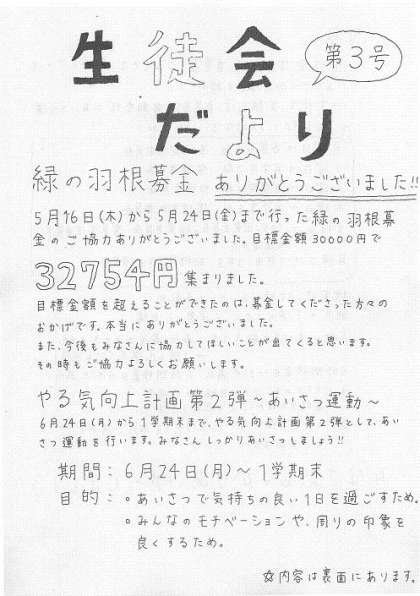 生徒会
第3号
だより
緑の羽根募金 ありがとうございました!!
5月16日(木)から5月24日(金)まで行った緑の羽根募
金のご協力ありがとうございました。目標金額30000円で
32754円集まりました。
目標金額を超えることができたのは、募金してくださった方々の
おかげです。本当にありがとうございました。
また、今後もみなさんに協力してほしいことが出てくると思います。
その時もご協力よろしくお願いします。
やる気向上計画第2弾～あいさつ運動～
6月24日(月)から1学期末まで、やる気向上計画第2弾として、あい
さつ運動を行います。みなさんしっかりあいさつしましょう!!
期間:6月24日(月)～1学期末
目的:。あいさつで気持ちの良い1日を過ごすため。
。みんなのモチベーションや、周りの印象を
良くするため。
☆内容は裏面にあります。